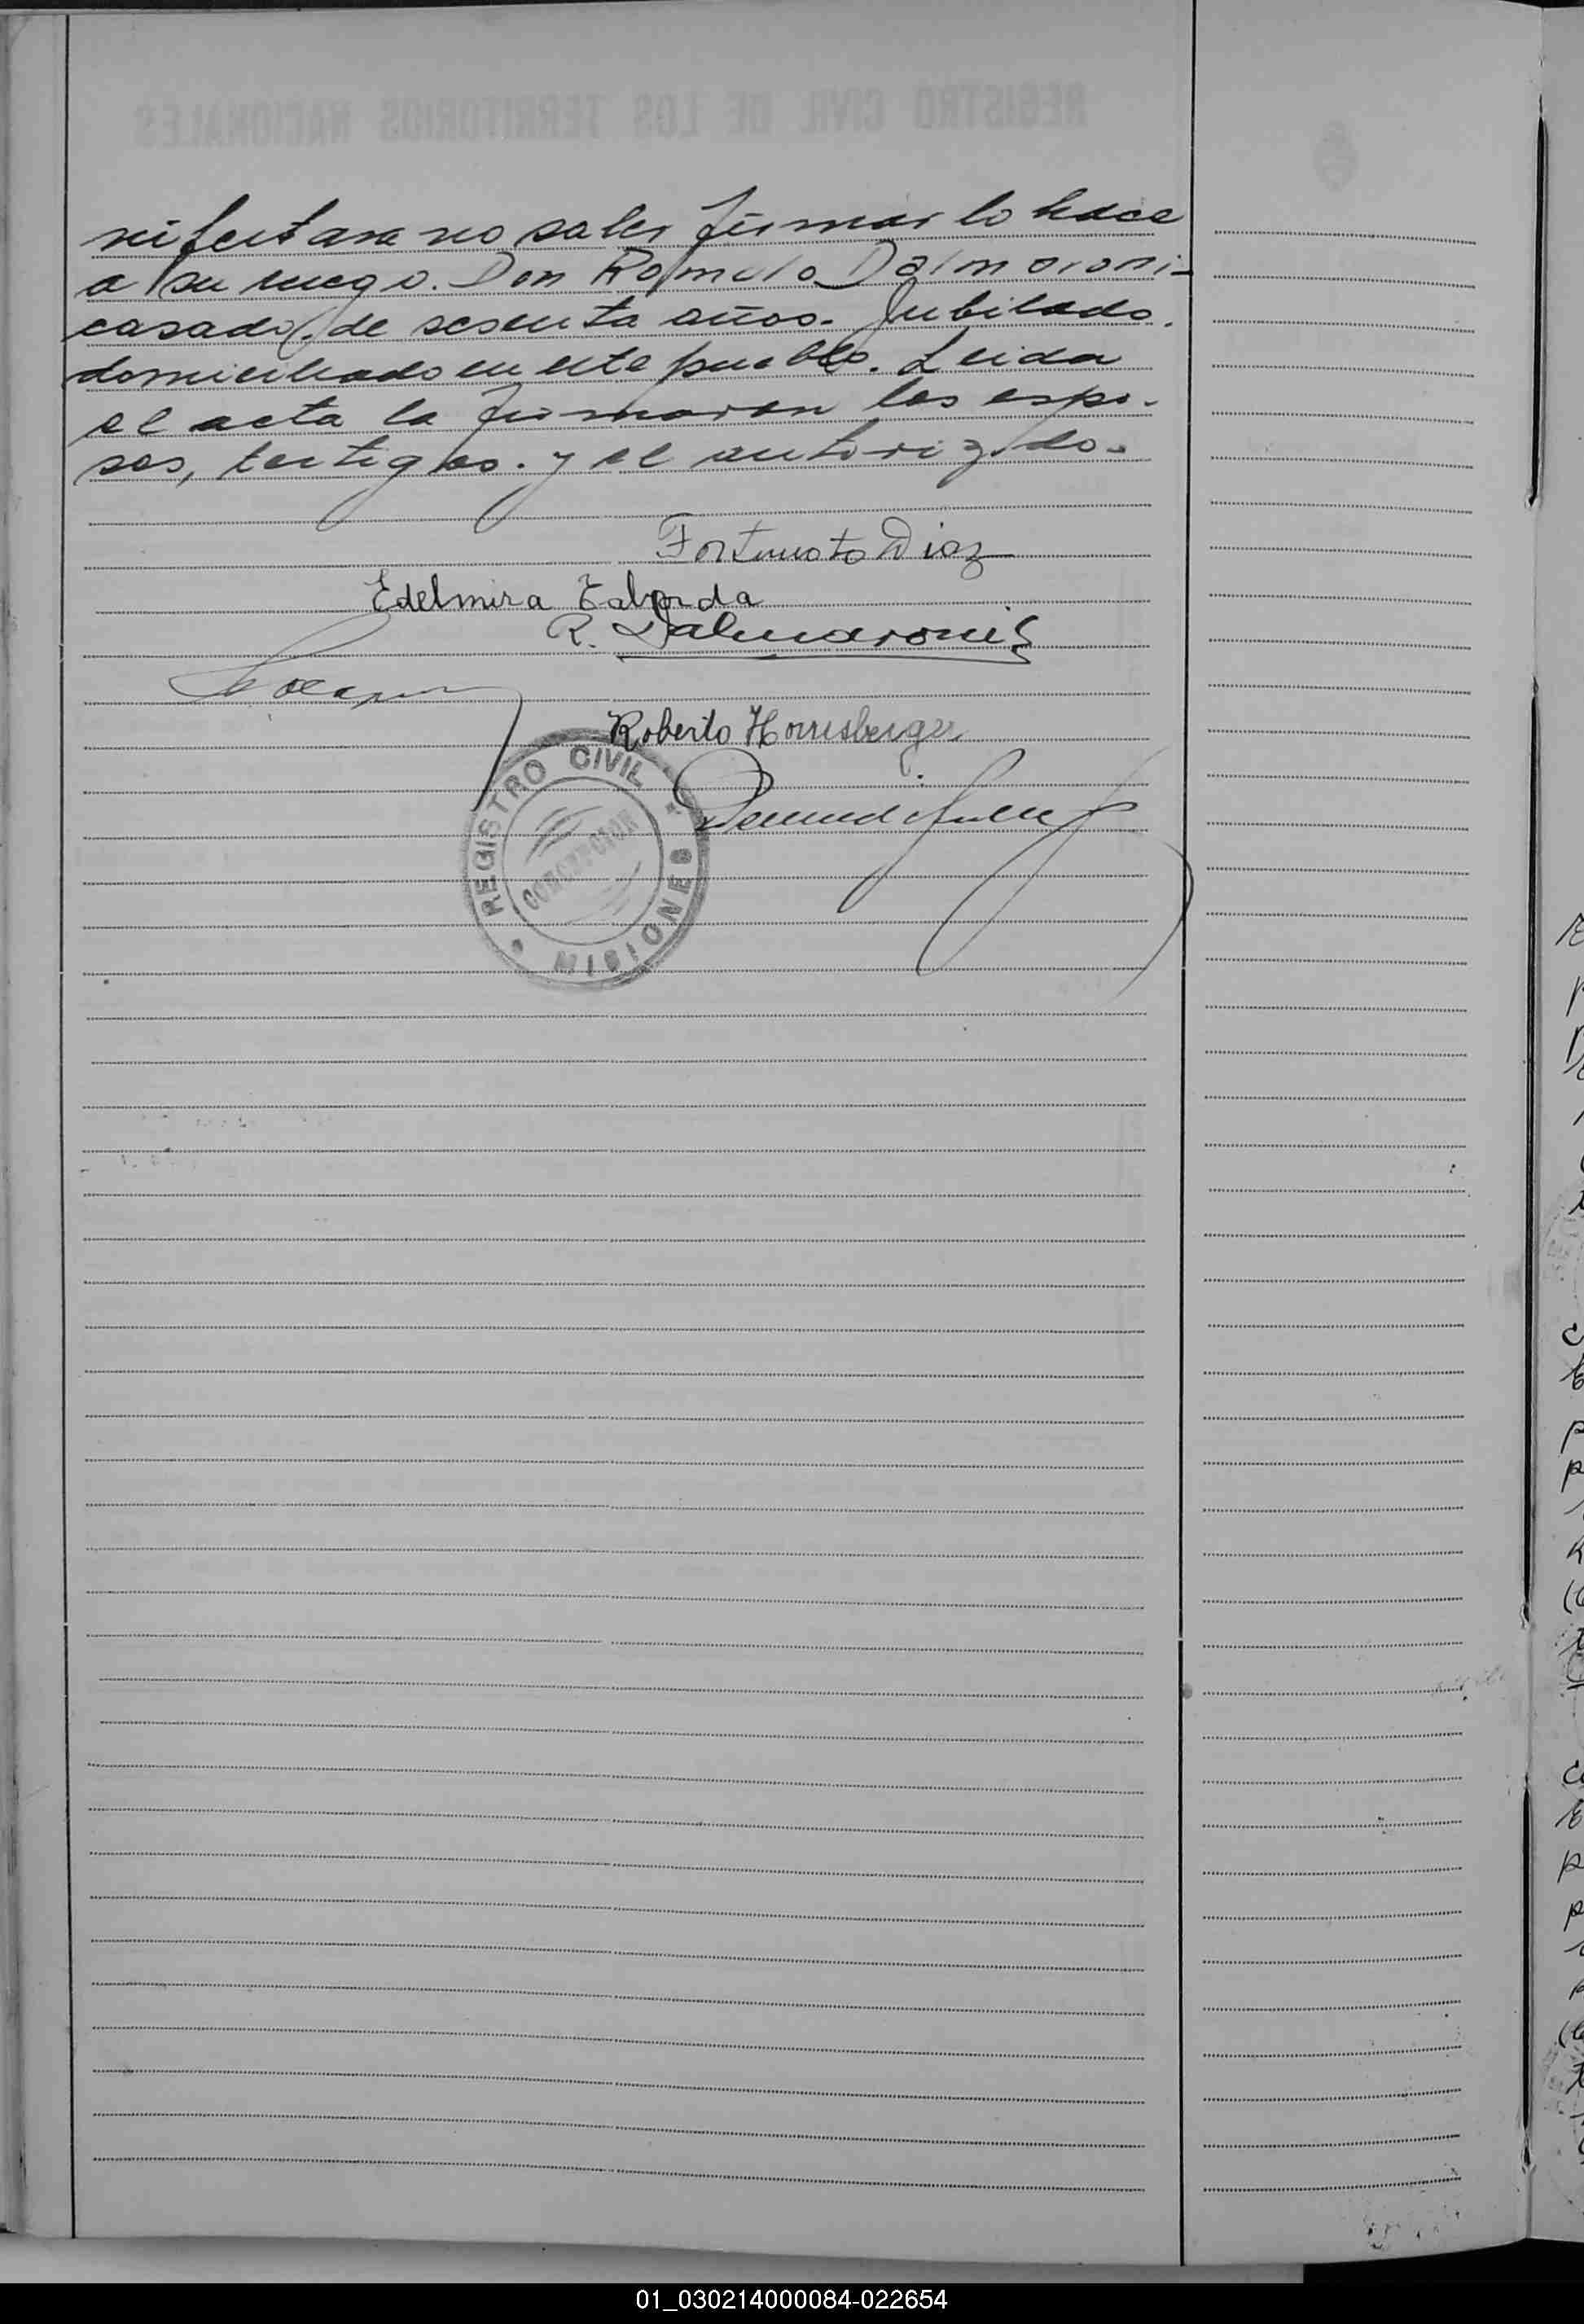 REGISTRO CIVIL DE LOS TERRITORIOS NACIONALES
nifestara no saber firmar lo hace
a su ruego. Don Romulo Dalmaroni-
casado, de sesenta años. Jubilado.
domiciliado en este pueblo. Leida
el acta la firmaron los espo-
sos, testigos. y el autorizado.
Fortunato Diaz
Edelmira Taborda
R. Dalmaroni
Roberto Horrisberger
REGISTRO CIVIL
CONCEPCION
MISIONES
01_030214000084-022654